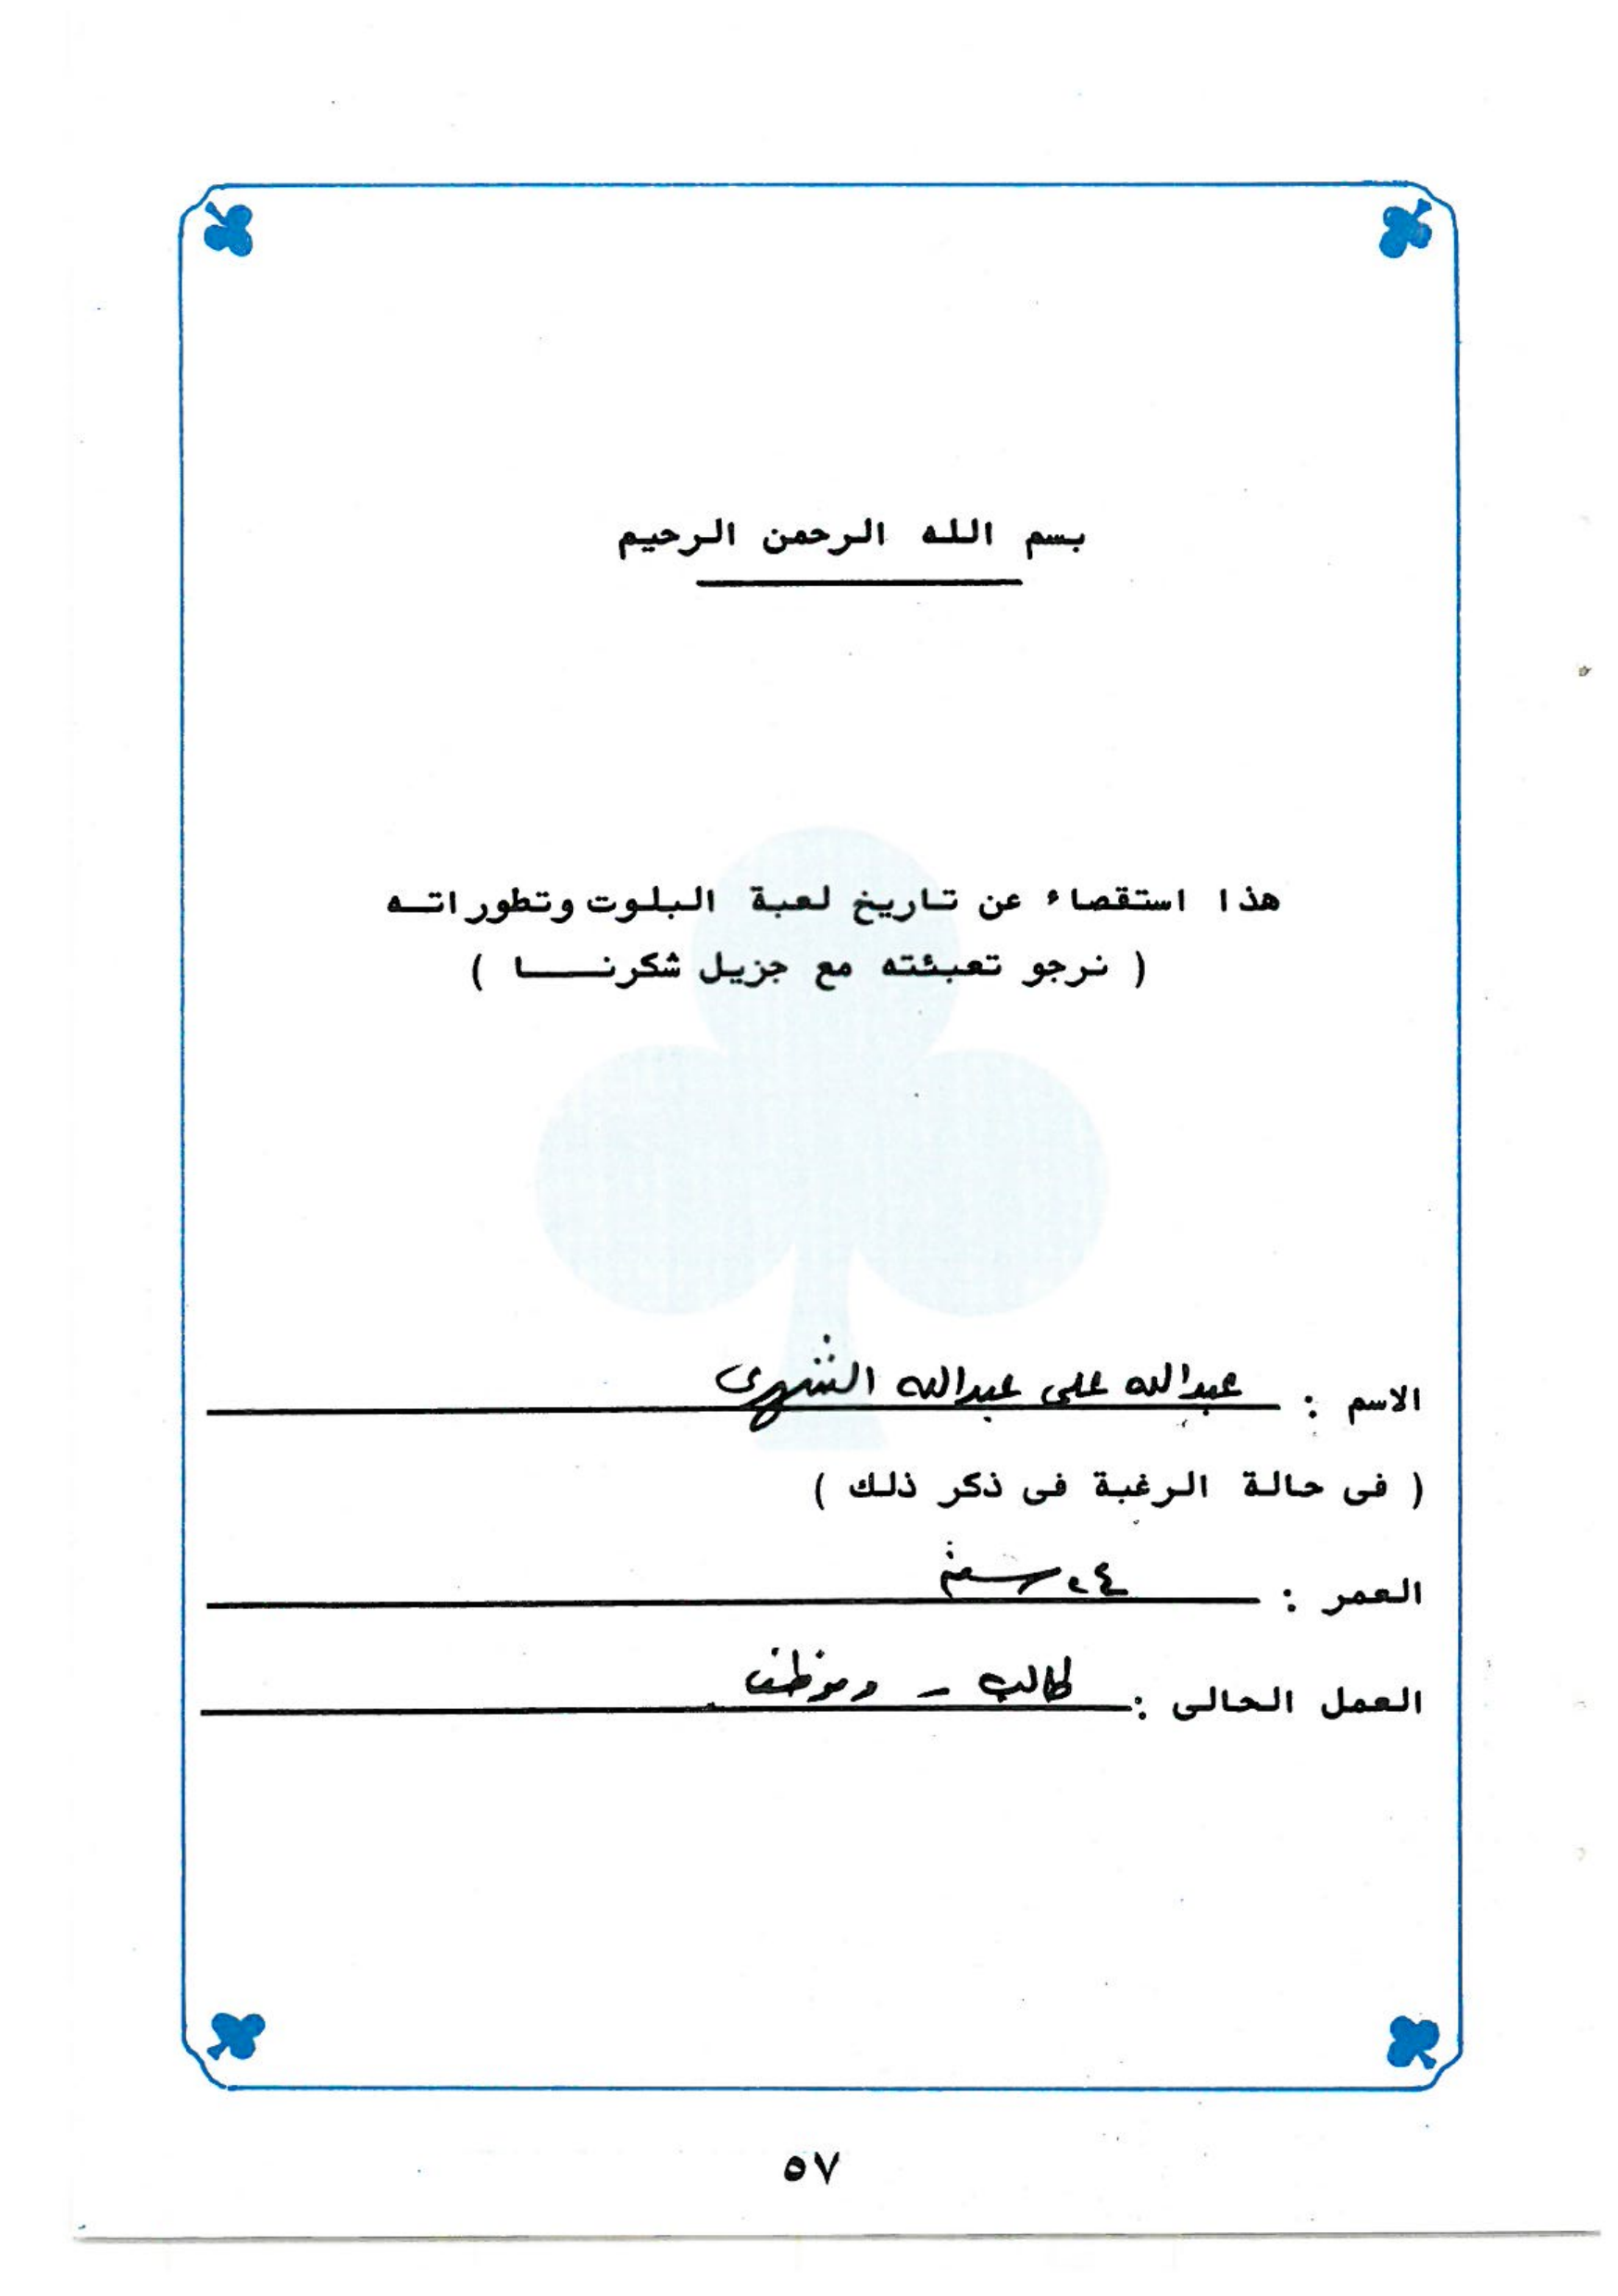 بسم الله الرحمن الرحيم
هذا استقصاء عن تاريخ لعبة البلوت وتطوراتـه
( نرجو تعبئته مع جزيل شكرنــا )
الاسم : عبدالله على عبدالله الشهرى
( فى حالة الرغبة فى ذكر ذلك )
العمر : ٢٤ سنة
العمل الحالى : طالب - وموظف
٥٧